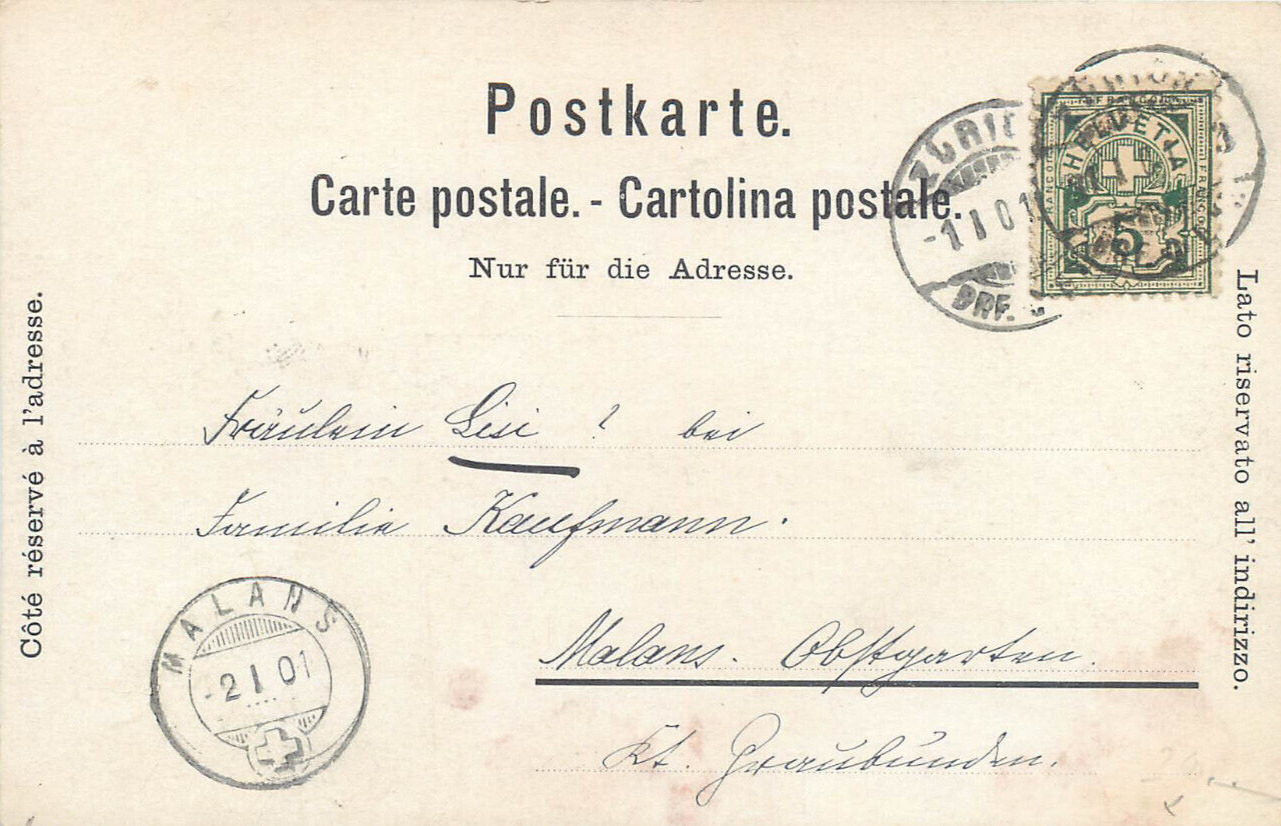 Postkarte.
Carte postale. - Cartolina postale.
Nur für die Adresse.
Côté réservé à l'adresse.
Lato riservato all' indirizzo.
ZÜRICH
-1 I 01
BRF.
FRANCO
HELVETIA
5
Fräulein Lisi ? bei
Familie Kaufmann.
Malans. Obstgarten.
Kt. Graubünden.
MALANS
-2 I 01